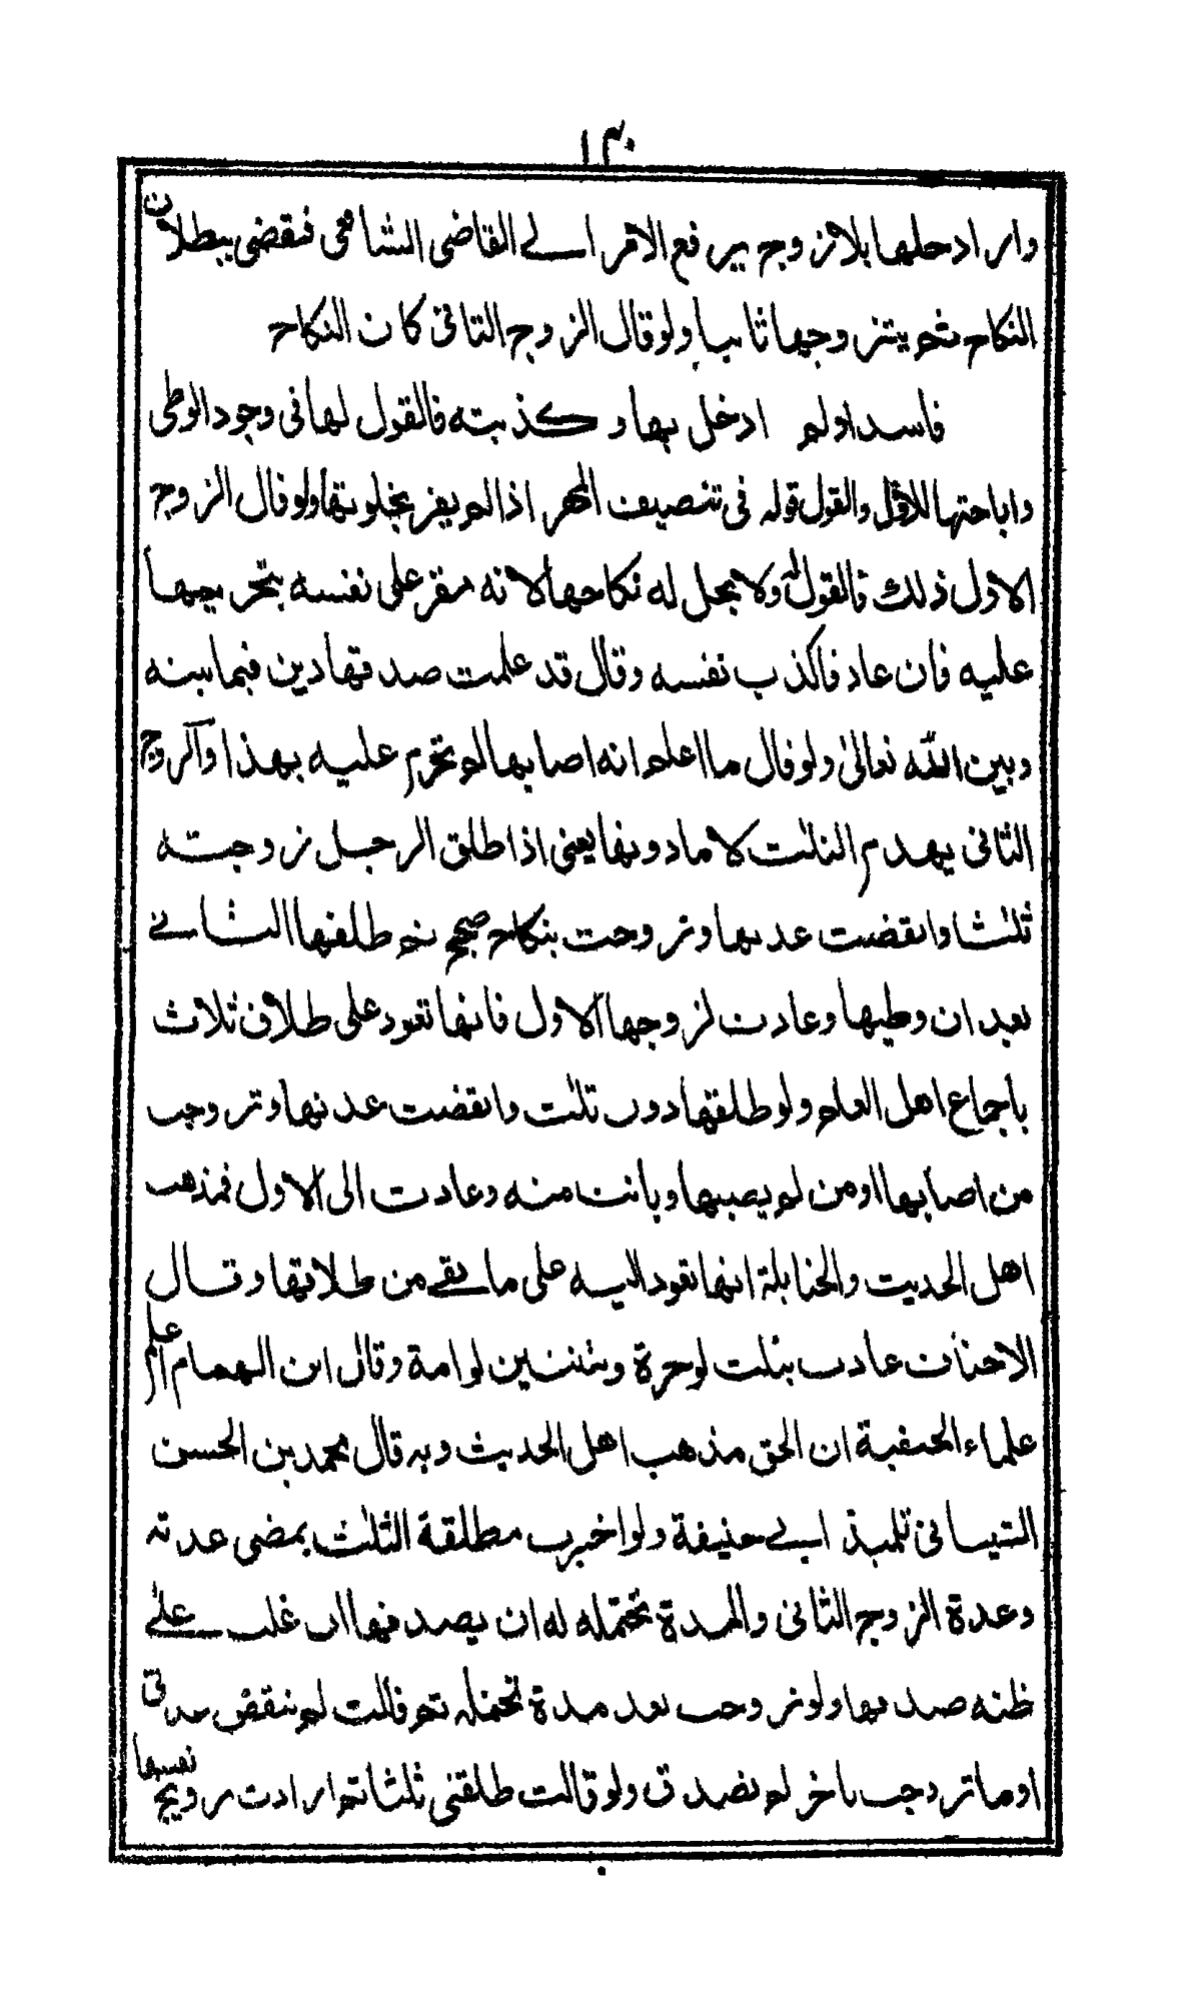 ١٣٠
واراد حلها بلا زوج يرفع الامر الے القاضى الشافعى فيقضى ببطلان
النكاح ثم يتزوجها ثانيا ولو قال الزوج الثانى كان النكاح
فاسدا ولم ادخل بها وكذبته فالقول لها فى وجود الوطى
واباحتها للاول والقول قوله فى تنصيف المهر اذا لم يقر بخلوتها ولو قال الزوج
الاول ذلك فالقول له ولا يحل له نكاحها لانه مقر على نفسه بتحريمها
عليه فان عاد فاكذب نفسه وقال قد علمت صدقها دين فيما بينه
وبين الله تعالى ولو قال ما اعلم انه اصابها لم تحرم عليه بهذا والزوج
الثانى يهدم الثلث لا ما دونها يعنى اذا طلق الرجل زوجته
ثلثا وانقضت عدتها وتزوجت بنكاح صحيح ثم طلقها الثانے
بعد ان وطيها وعادت لزوجها الاول فانها تعود على طلاق ثلاث
باجماع اهل العلم ولو طلقها دون ثلث وانقضت عدتها وتزوجت
من اصابها او من لم يصبها وبانت منه وعادت الى الاول فمذهب
اهل الحديث والحنابلة انها تعود اليه على ما بقے من طلاقها وقال
الاحناف عادت بثلث لو حرة وبثنتين لو امة وقال ابن الهمام اعلم
علماء الحنفية ان الحق مذهب اهل الحديث وبه قال محمد بن الحسن
الشيبانى تلميذ ابے حنيفة ولو اخبرت مطلقة الثلث بمضى عدته
وعدة الزوج الثانى والمدة تحتمله له ان يصدقها ان غلب علے
ظنه صدقها ولو تزوجت بعد مدة تحتمله ثم قالت لم تنقض عدتى
او ما تزوجت باخر لم تصدق ولو قالت طلقنى ثلثا ثم ارادت تزويج نفسها